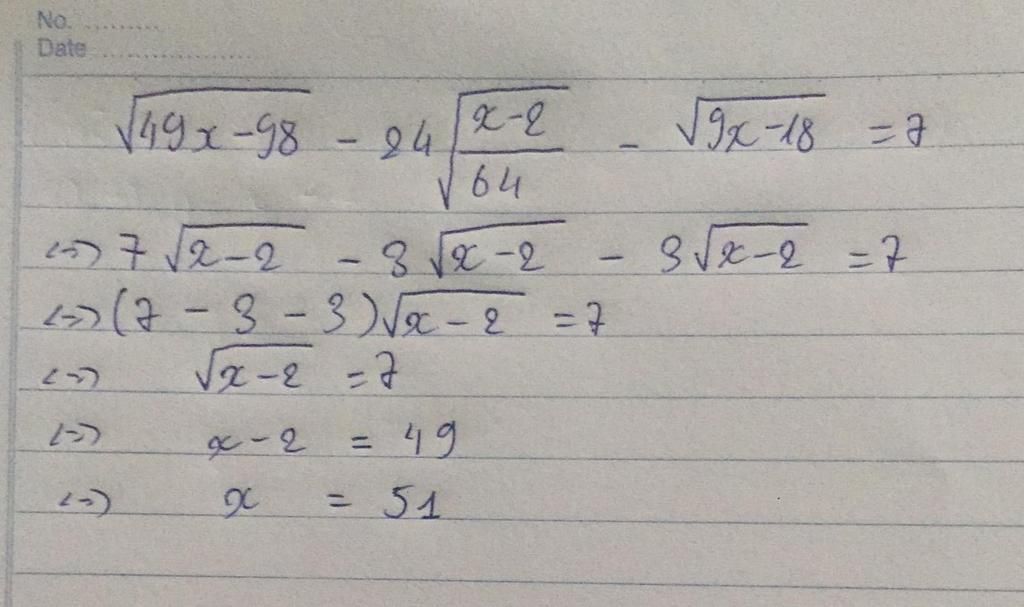 No. ..........
Date ....................
√(49x-98) - 24√((x-2)/64) - √(9x-18) = 7
<=> 7√(x-2) - 3√(x-2) - 3√(x-2) = 7
<=> (7 - 3 - 3)√(x-2) = 7
<=> √(x-2) = 7
<=> x-2 = 49
<=> x = 51